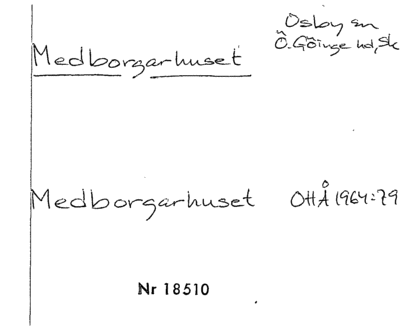 Osby sn
Ö. Göinge hd, Sk
Medborgarhuset
Medborgarhuset OHÅ 1964:79
Nr 18510